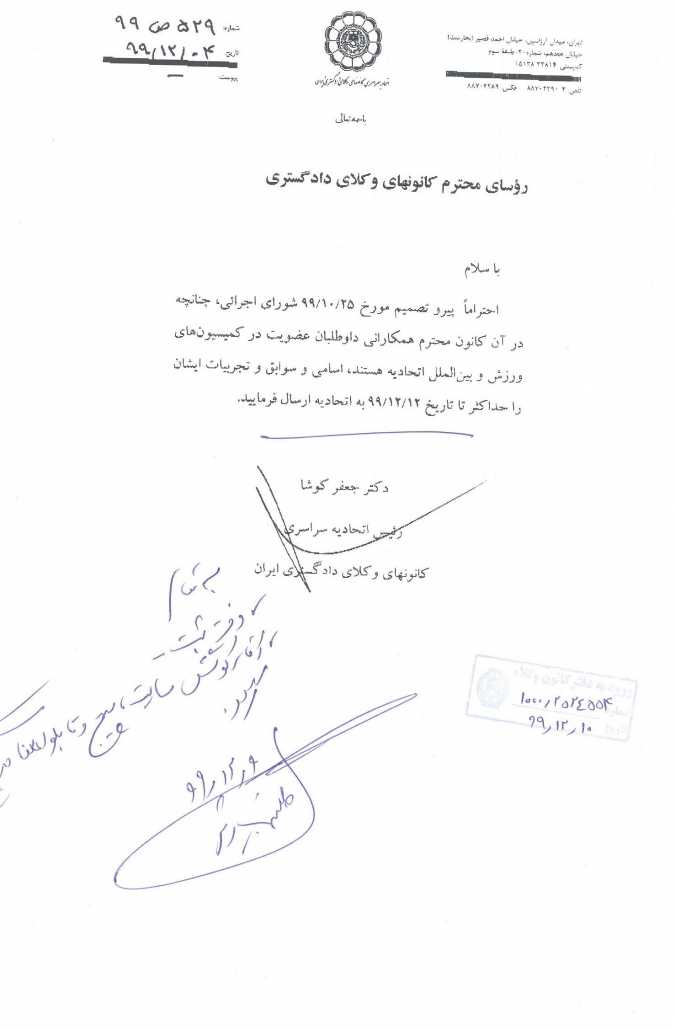 شماره: ۵۲۹ ص ۹۹
تاریخ ۹۹/۱۲/۰۴
پیوست:
تهران، میدان آرژانتین، خیابان احمد قصیر (بخارست)
خیابان هفدهم، شماره ۲۰، طبقهٔ سوم
کدپستی: ۲۳۸۱۴ ۱۵۱۳۸
تلفن: ۲ ۸۸۷۰۲۲۹۰ فکس: ۸۸۷۰۲۲۸۹
باسمه تعالی
رؤسای محترم کانونهای وکلای دادگستری
با سلام
احتراماً پیرو تصمیم مورخ ۹۹/۱۰/۲۵ شورای اجرائی، چنانچه
در آن کانون محترم همکارانی داوطلبان عضویت در کمیسیون‌های
ورزش و بین‌الملل اتحادیه هستند، اسامی و سوابق و تجربیات ایشان
را حداکثر تا تاریخ ۹۹/۱۲/۱۲ به اتحادیه ارسال فرمایید.
دکتر جعفر کوشا
رئیس اتحادیه سراسری
کانونهای وکلای دادگستری ایران
دفتر ثبت
سایت
۹۹/۱۲/۹
ورود به دفتر کانون وکلاء
۹۹/۱۲/۱۰